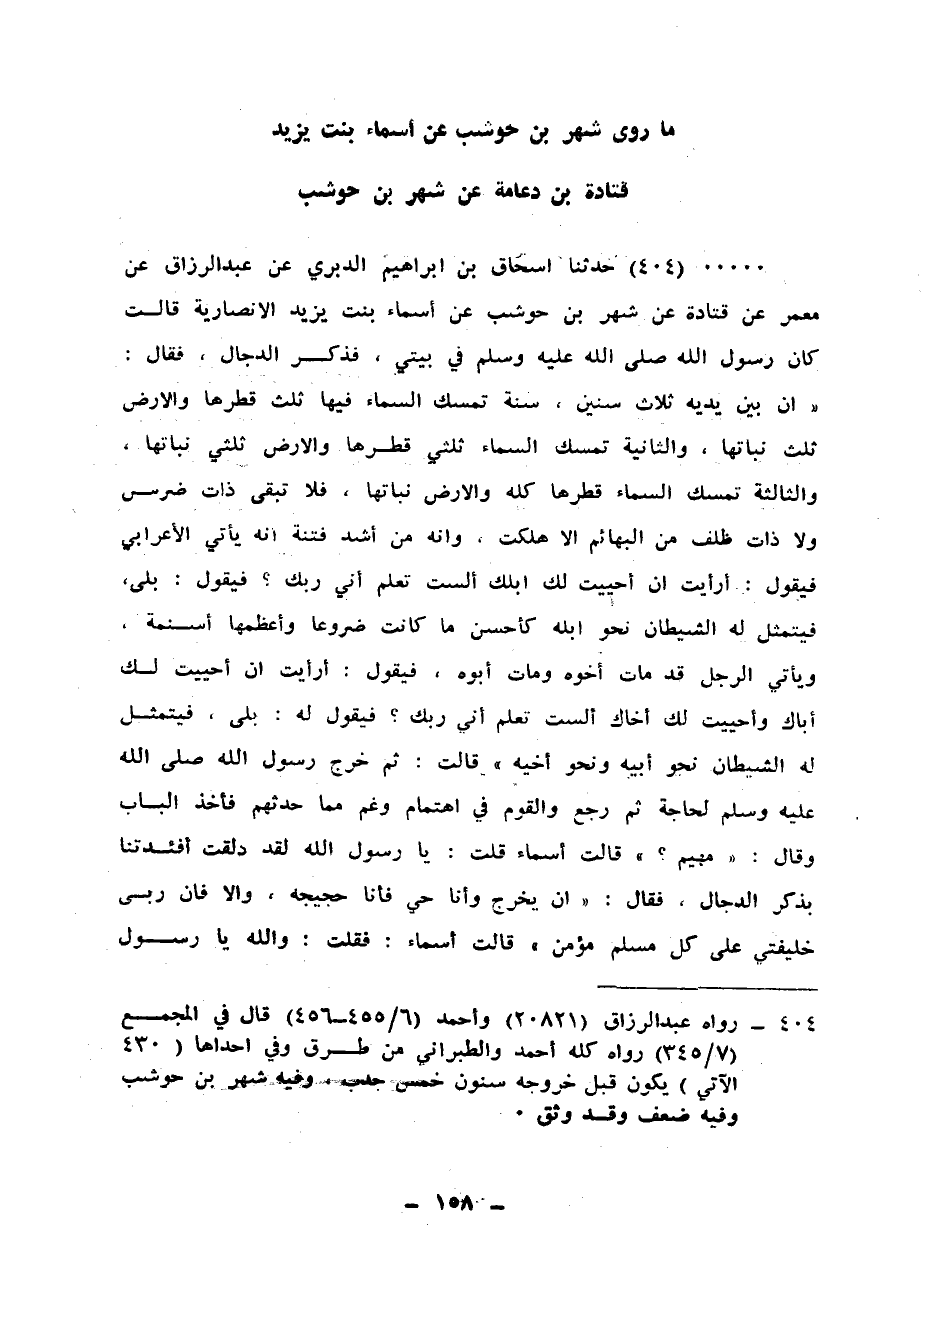 ما روى شهر بن حوشب عن أسماء بنت يزيد
قتادة بن دعامة عن شهر بن حوشب
٠٠٠٠٠ (٤٠٤) حدثنا اسحاق بن ابراهيم الدبري عن عبدالرزاق عن
معمر عن قتادة عن شهر بن حوشب عن أسماء بنت يزيد الانصارية قالت
كان رسول الله صلى الله عليه وسلم في بيتي ، فذكر الدجال ، فقال :
« ان بين يديه ثلاث سنين ، سنة تمسك السماء فيها ثلث قطرها والارض
ثلث نباتها ، والثانية تمسك السماء ثلثي قطرها والارض ثلثي نباتها ،
والثالثة تمسك السماء قطرها كله والارض نباتها ، فلا تبقى ذات ضرس
ولا ذات ظلف من البهائم الا هلكت ، وانه من أشد فتنة انه يأتي الأعرابي
فيقول : أرأيت ان أحييت لك ابلك ألست تعلم أني ربك ؟ فيقول : بلى،
فيتمثل له الشيطان نحو ابله كأحسن ما كانت ضروعا وأعظمها أسنمة ،
ويأتي الرجل قد مات أخوه ومات أبوه ، فيقول : أرأيت ان أحييت لك
أباك وأحييت لك أخاك ألست تعلم أني ربك ؟ فيقول له : بلى ، فيتمثل
له الشيطان نحو أبيه ونحو أخيه » قالت : ثم خرج رسول الله صلى الله
عليه وسلم لحاجة ثم رجع والقوم في اهتمام وغم مما حدثهم فأخذ الباب
وقال : « مهيم ؟ » قالت أسماء قلت : يا رسول الله لقد دلقت أفئدتنا
بذكر الدجال ، فقال : « ان يخرج وأنا حي فأنا حجيجه ، والا فان ربى
خليفتي على كل مسلم مؤمن » قالت أسماء : فقلت : والله يا رسول
٤٠٤ ـ رواه عبدالرزاق (٢٠٨٢١) وأحمد (٦/٤٥٥ــ٤٥٦) قال في المجمع
(٧/٣٤٥) رواه كله أحمد والطبراني من طرق وفي احداها ( ٤٣٠
الآتي ) يكون قبل خروجه سنون خمس جدب ، وفيه شهر بن حوشب
وفيه ضعف وقد وثق ٠
ـ ١٥٨ ـ